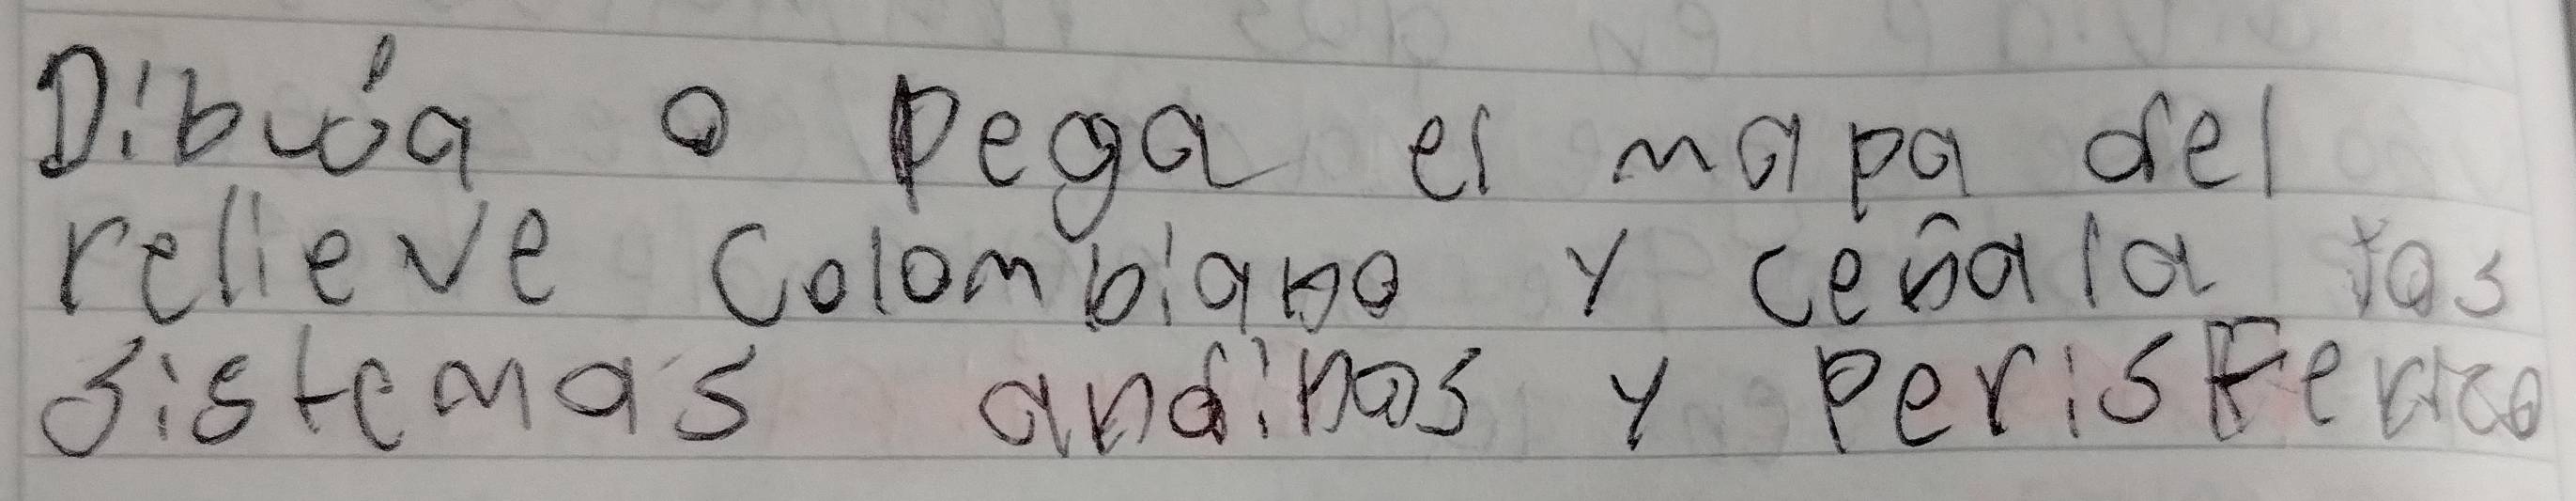 Dibuja o pega el mapa del
relieve Colombiano y ceñala los
sistemas andinos y Perisferico